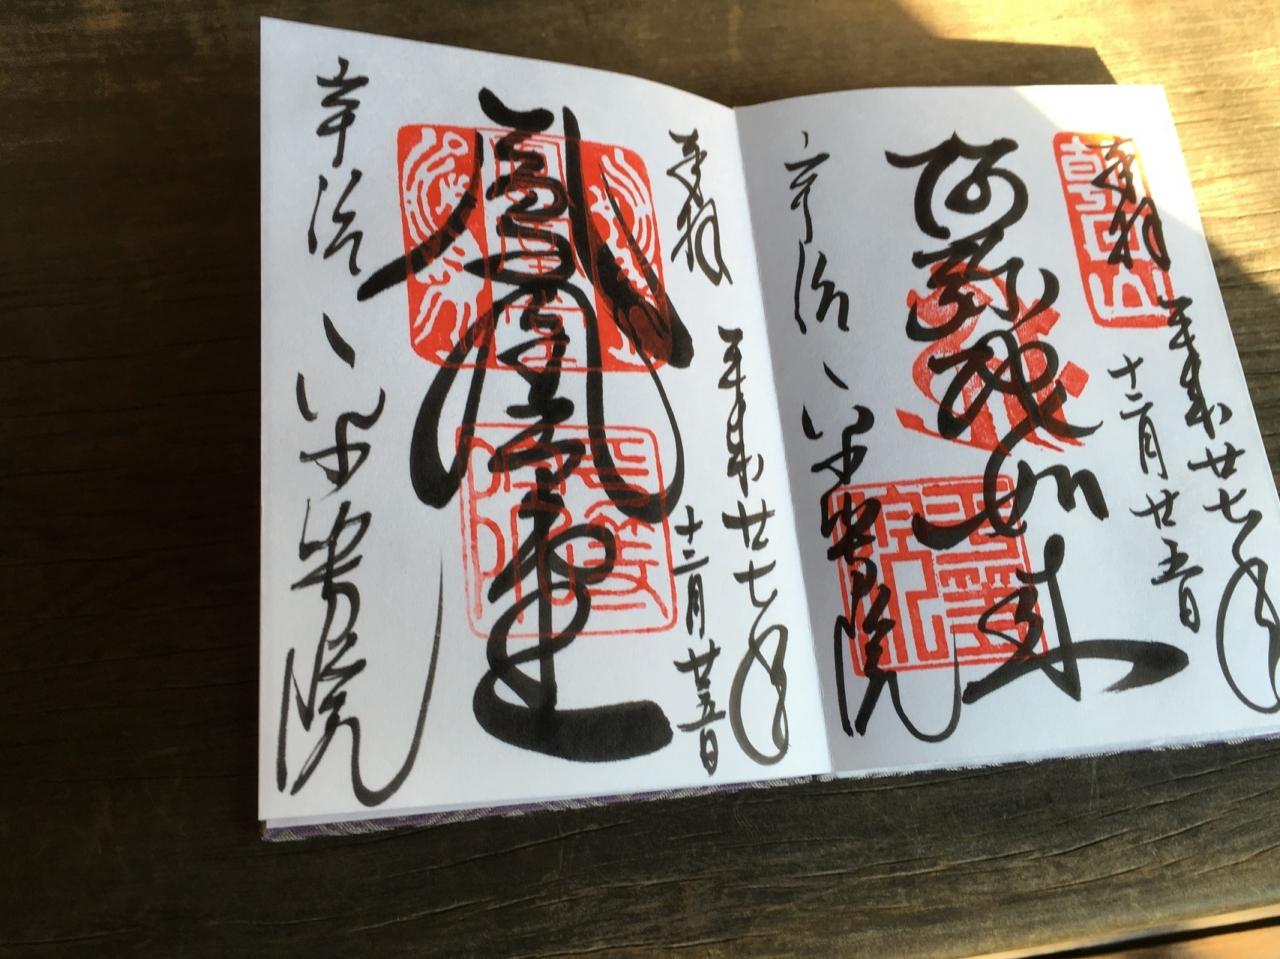 朝日山
奉拝
平成廿七年
十二月廿五日
阿弥陀如来
宇治 平等院
奉拝
平成廿七年
十二月廿五日
鳳凰堂
宇治 平等院